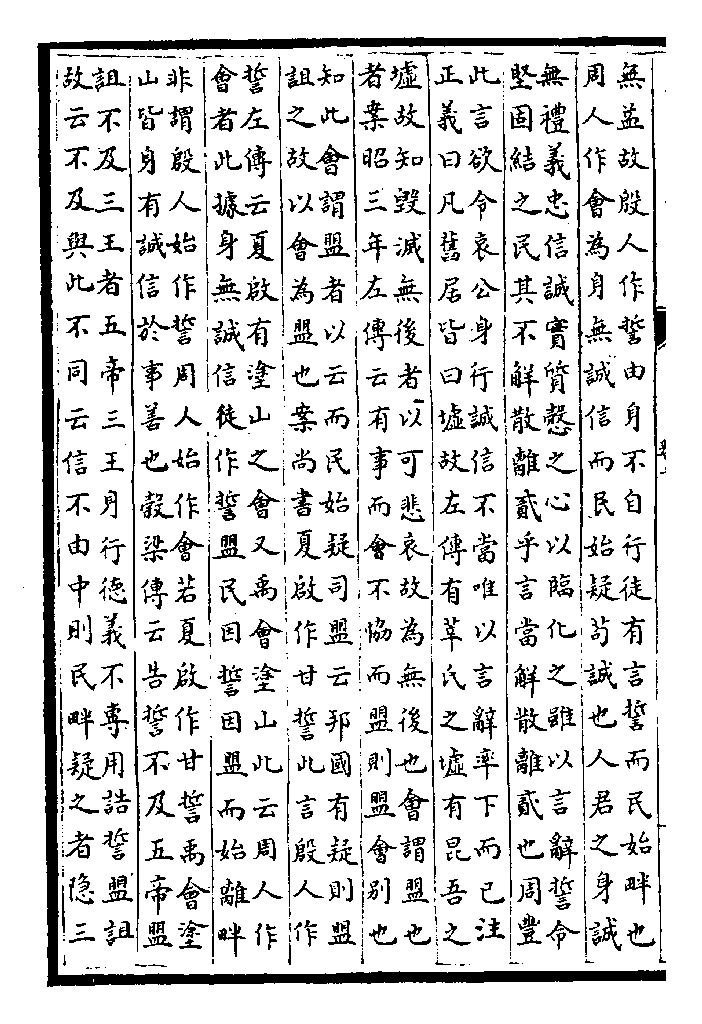 無益故殷人作誓由身不自行徒有言誓而民始畔也
周人作會為身無誠信而民始疑苟誠也人君之身誠
無禮義忠信誠實質慤之心以臨化之雖以言辭誓命
堅固結之民其不解散離貳乎言當解散離貳也周豐
此言欲令哀公身行誠信不當唯以言辭率下而已注
正義曰凡舊居皆曰墟故左傳有莘氏之墟有昆吾之
墟故知毀滅無後者以可悲哀故為無後也會謂盟也
者案昭三年左傳云有事而會不協而盟則盟會別也
知此會謂盟者以云而民始疑司盟云邦國有疑則盟
詛之故以會為盟也案尚書夏啟作甘誓此言殷人作
誓左傳云夏啟有塗山之會又禹會塗山此云周人作
會者此據身無誠信徒作誓盟民因誓因盟而始離畔
非謂殷人始作誓周人始作會若夏啟作甘誓禹會塗
山皆身有誠信於事善也穀梁傳云告誓不及五帝盟
詛不及三王者五帝三王身行德義不專用誥誓盟詛
故云不及與此不同云信不由中則民畔疑之者隱三